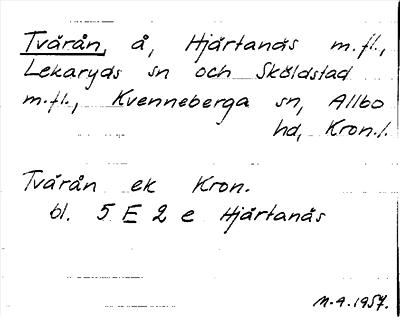 Tvärån, å, Hjärtanäs m.fl.,
Lekaryds sn och Sköldstad
m.fl., Kvenneberga sn, Allbo
hd, Kron.l.
Tvärån ek Kron.
bl. 5 E 2 e Hjärtanäs
M.A.1957.